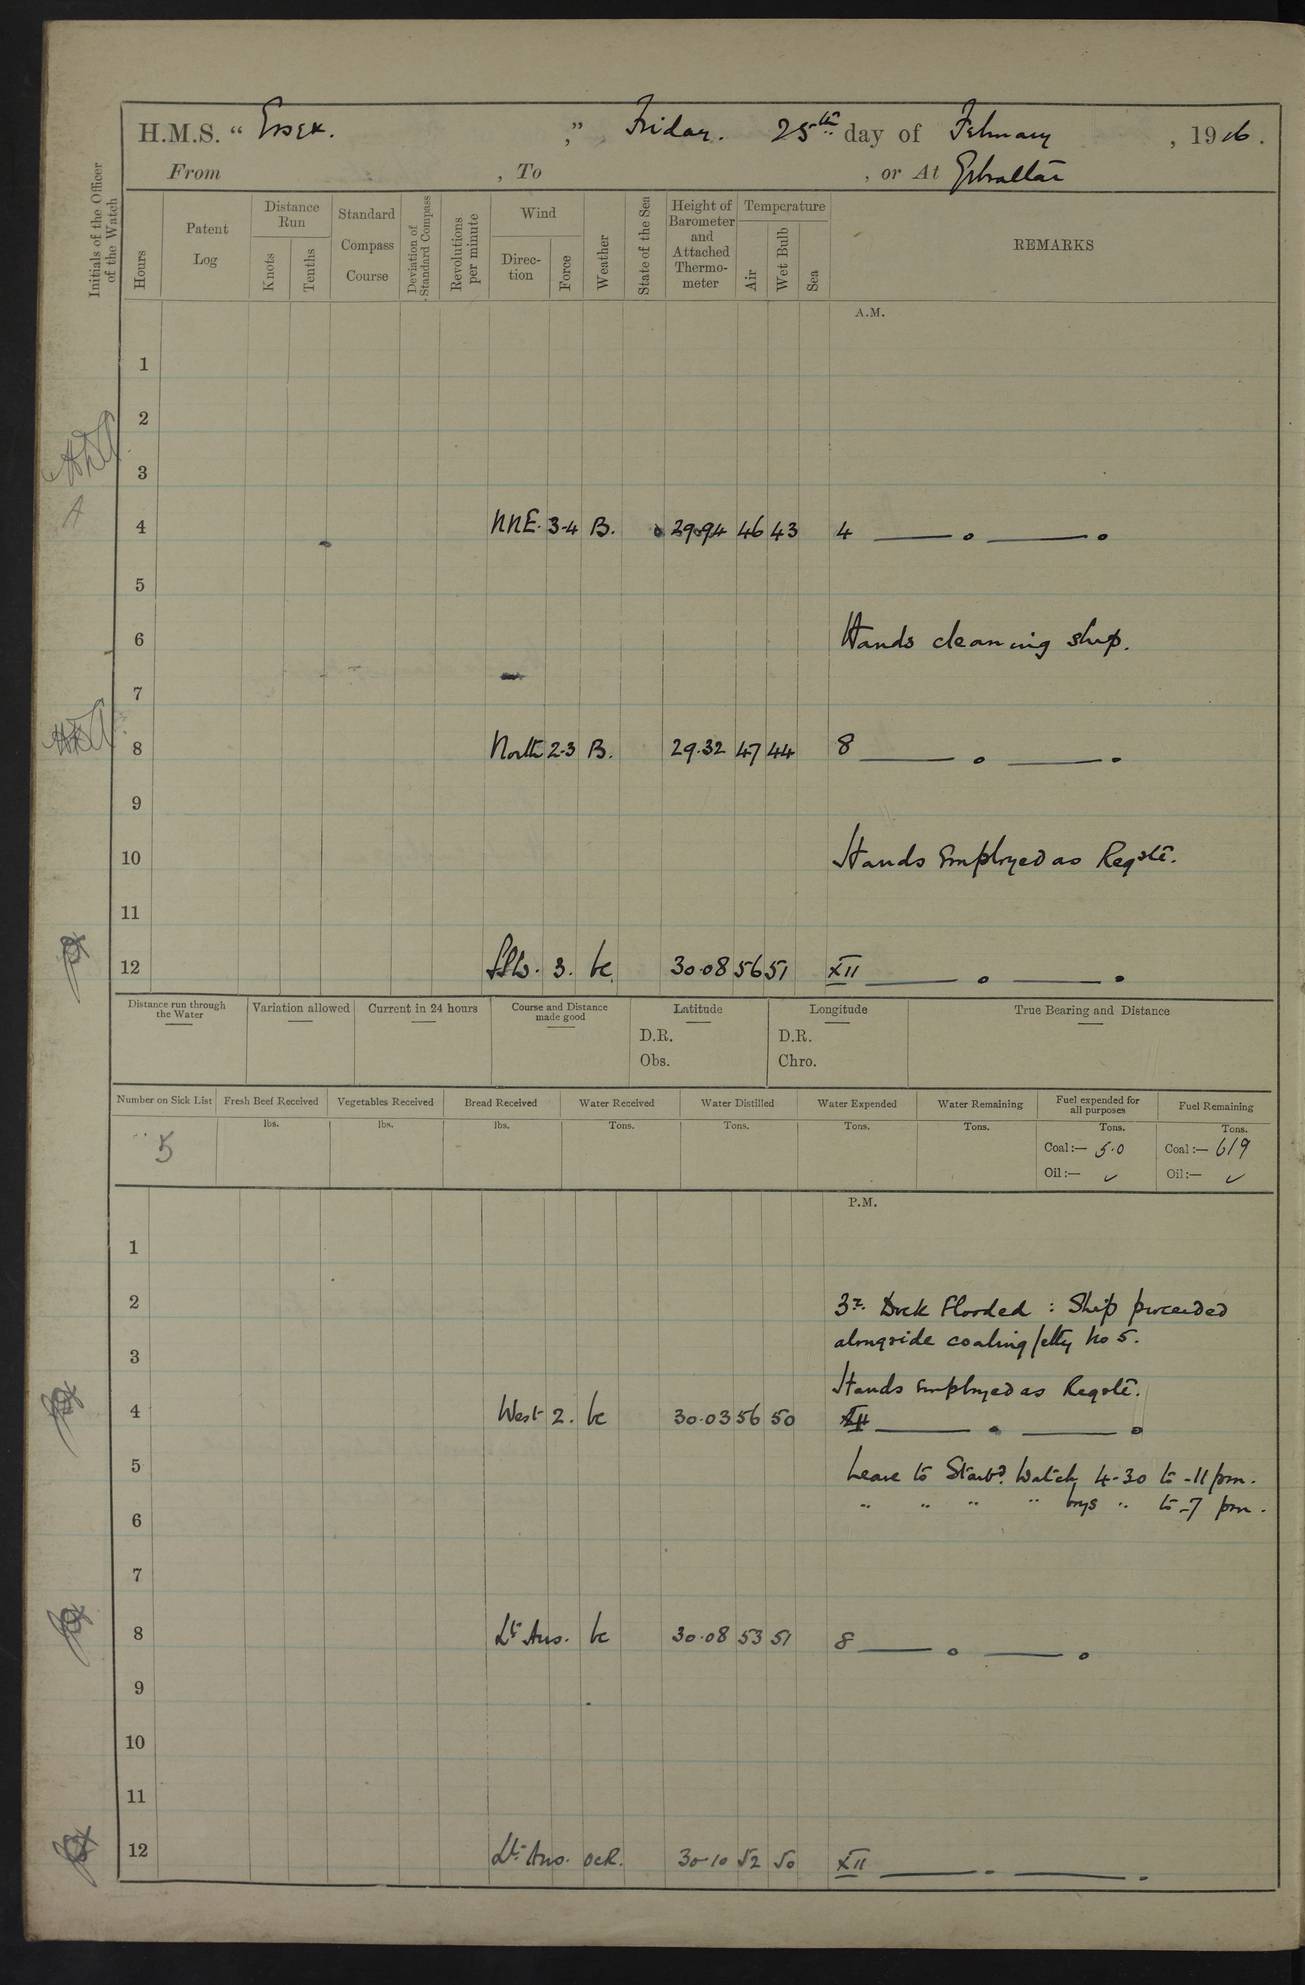 H.M.S. “ Essex. ,” Friday. 25th day of February , 1916.
From , To , or At Gibraltar
Initials of the Officer of the Watch
Hours
Patent Log
Distance Run
Knots
Tenths
Standard Compass Course
Deviation of Standard Compass
Revolutions per minute
Wind
Direction
Force
Weather
State of the Sea
Height of Barometer and Attached Thermometer
Temperature
Air
Wet Bulb
Sea
REMARKS
A.M.
1
2
3
4 NNE. 3-4 B. 29.94 46 43 4
5
6 Hands cleaning ship.
7
8 North 2-3 B. 29.32 47 44 8
9
10 Hands Employed as Reqste.
11
12 3. bc 30.08 56 51 XII
Distance run through the Water
Variation allowed
Current in 24 hours
Course and Distance made good
Latitude
D.R.
Obs.
Longitude
D.R.
Chro.
True Bearing and Distance
Number on Sick List
5
Fresh Beef Received
lbs.
Vegetables Received
lbs.
Bread Received
lbs.
Water Received
Tons.
Water Distilled
Tons.
Water Expended
Tons.
Water Remaining
Tons.
Fuel expended for all purposes
Tons.
Coal:— 5.0
Oil:— ✓
Fuel Remaining
Tons.
Coal:— 619
Oil:— ✓
P.M.
1
2 Dock Flooded : Ship proceeded
3 alongside coaling jetty No 5.
Hands Employed as Reqste.
4 West 2. bc 30.03 56 50
5 Leave to Starbd. Watch 4-30 to -11 pm.
6 " " " " boys " to -7 pm.
7
8 Lt Airs. bc 30.08 53 51 8
9
10
11
12 Lt Airs. ocR. 30.10 52 50 XII